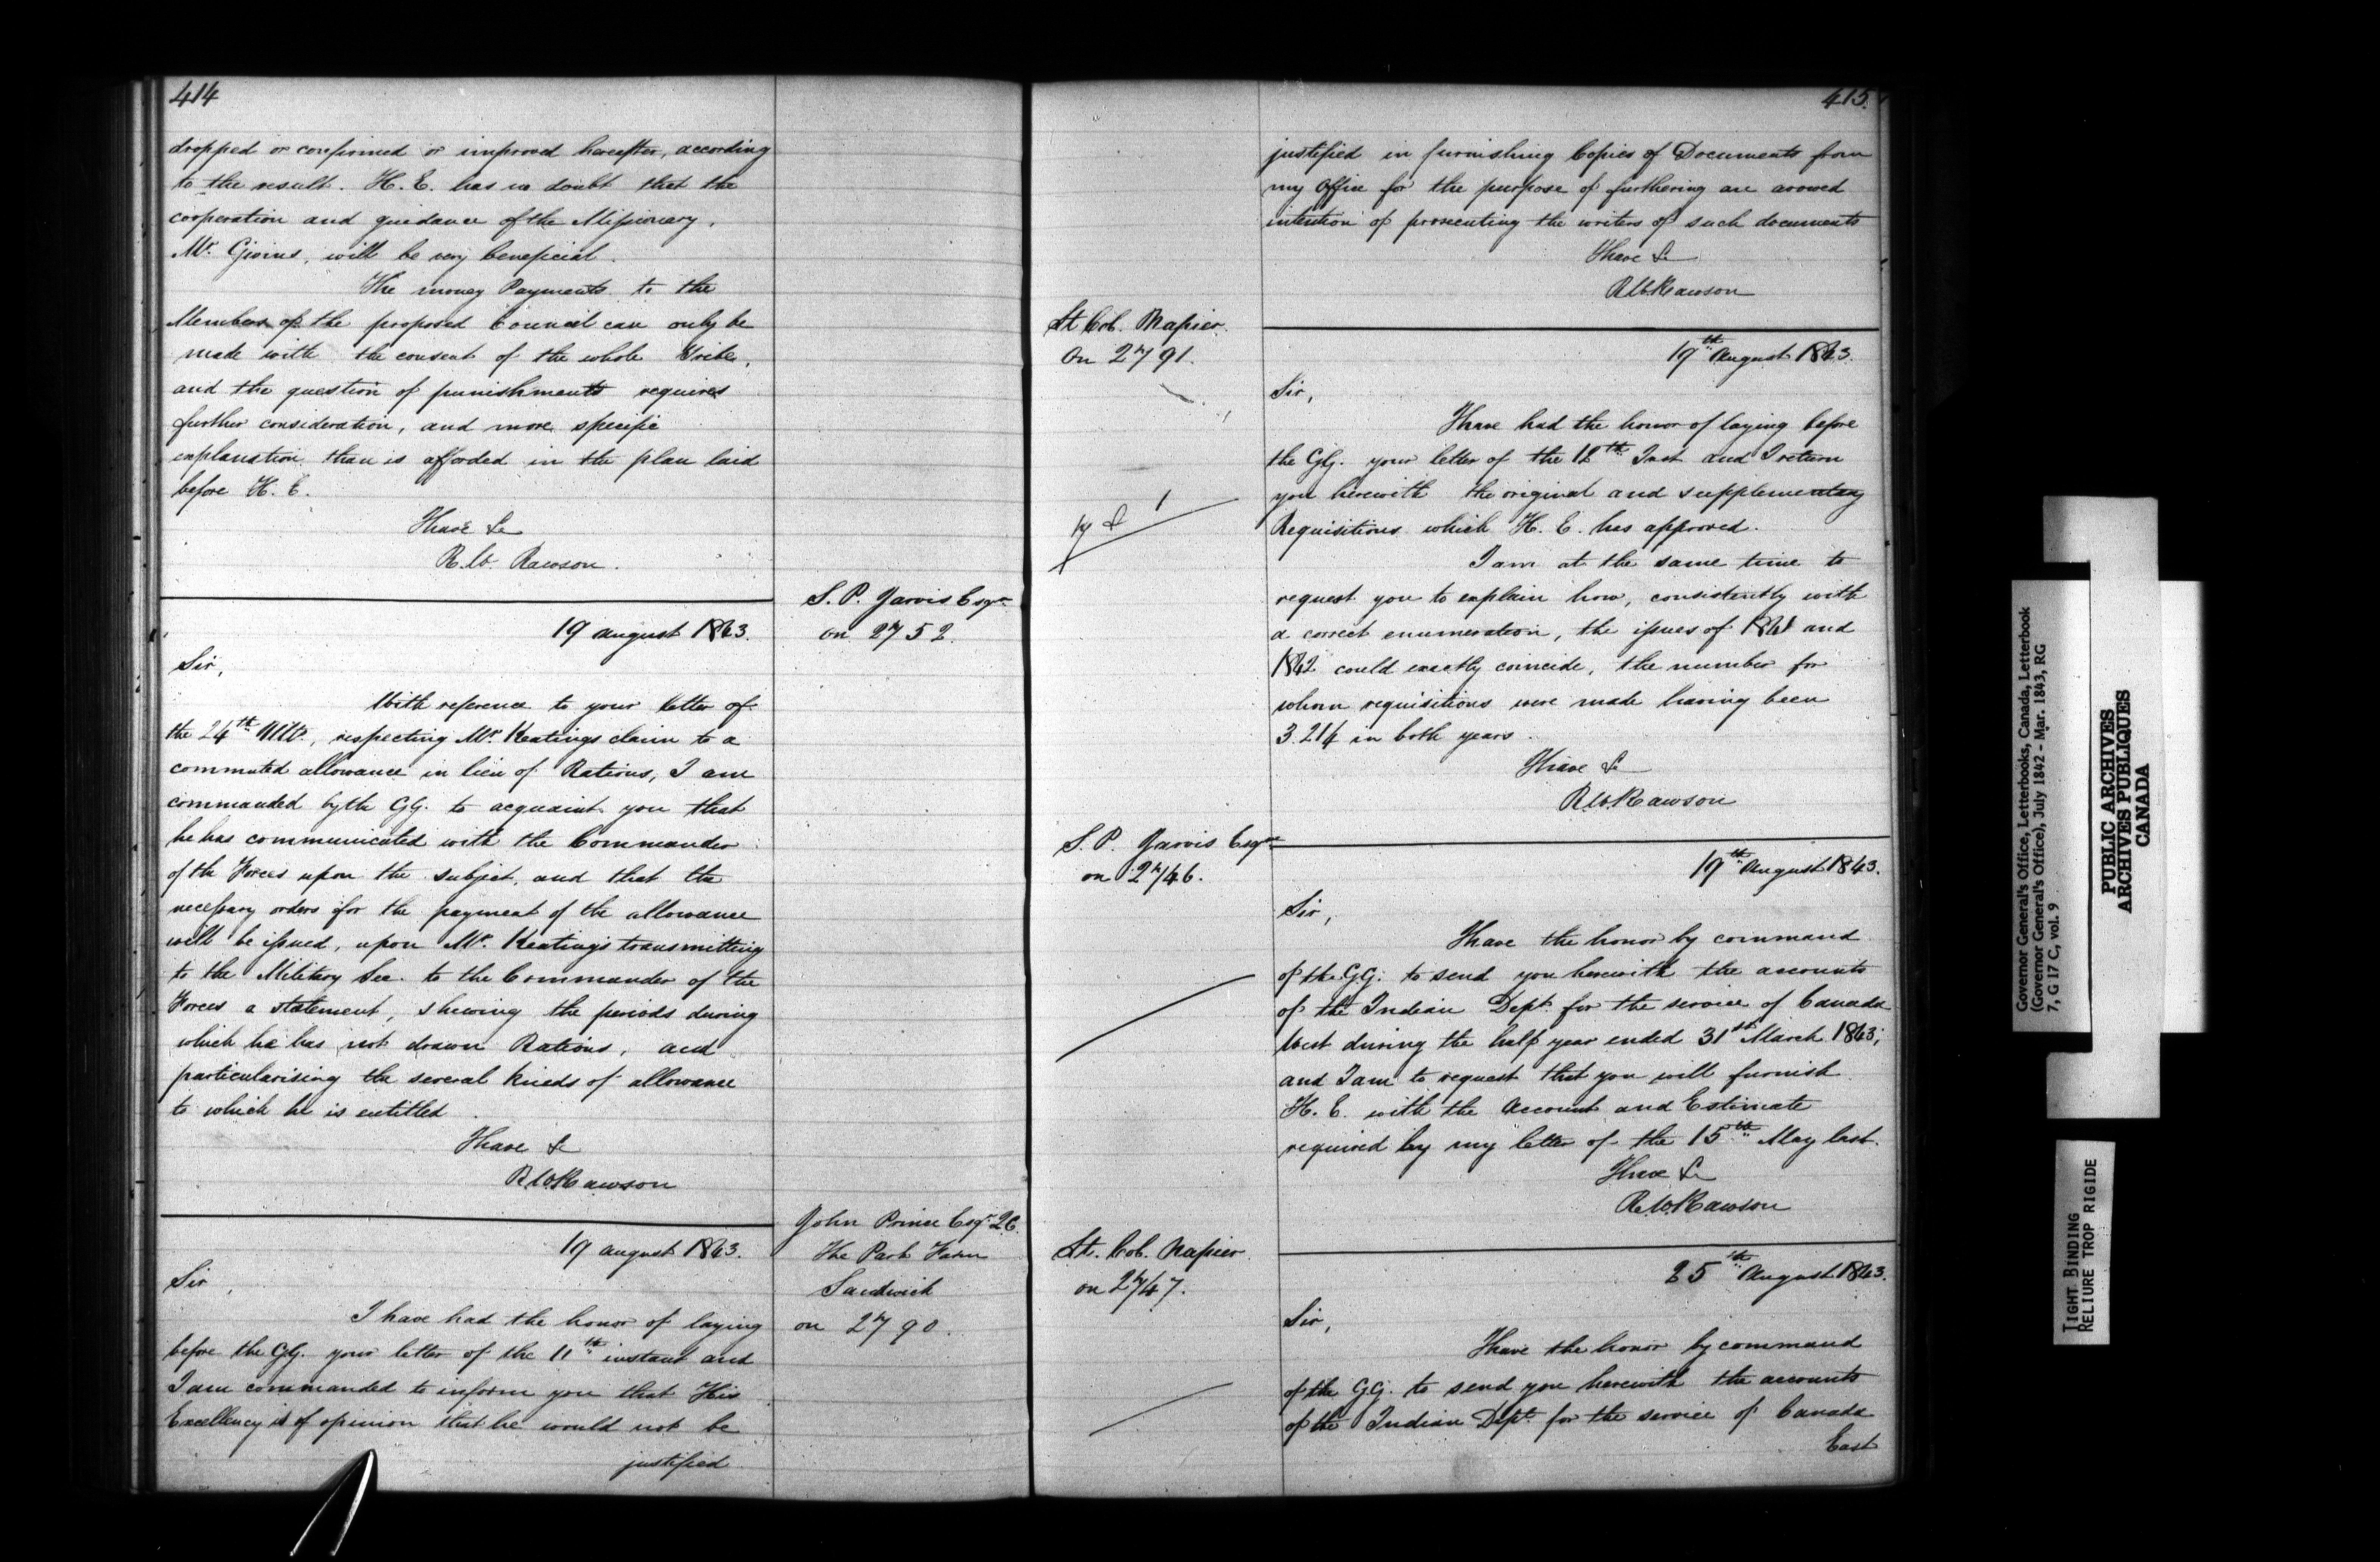 414
dropped or confirmed or improved hereafter, according
to the result. H. E. has no doubt that the
cooperation and guidance of the Missionary,
Mr. Givins, will be very beneficial.
The money Payments to the
Members of the proposed Council can only be
made with the consent of the whole Tribe,
and the question of punishments requires
further consideration, and more specific
explanation than is afforded in the plan laid
before H. E.
I have &c
R.W. Rawson.
S. P. Jarvis Esqre
on 2752.
19 August 1843.
Sir,
With reference to your letter of
the 24th Ulto., respecting Mr. Keatings claim to a
commuted allowance in lieu of Rations, I am
commanded by the GG. to acquaint you that
he has communicated with the Commander
of the Forces upon the subject, and that the
necessary orders for the payment of the allowance
will be issued, upon Mr. Keating's transmitting
to the Military Sec. to the Commander of the
Forces a statement, shewing the periods during
which he has not drawn Rations, and
particularising the several kinds of allowance
to which he is entitled.
I have &c
R.W. Rawson
John Prince Esqr. 2C.
The Park Farm
Sandwich
on 2790.
19 August 1843.
Sir,
I have had the honor of laying
before the GG. your letter of the 11th instant and
I am commanded to inform you that His
Excellency is of opinion that he would not be
justified
415.
justified in furnishing Copies of Documents from
my Office for the purpose of furthering an avowed
intention of prosecuting the writers of such documents
I have &c
R.W. Rawson
Lt Col. Napier.
On 2791.
19th August 1843.
Sir,
I have had the honor of laying before
the GG. your letter of the 12th Inst and I return
you herewith the original and supplementary
Requisitions which H. E. has approved.
I am at the same time to
request you to explain how, consistently with
a correct enumeration, the issues of 1841 and
1842 could exactly coincide, the number for
whom requisitions were made having been
3.214 in both years.
I have &c
R.W. Rawson
S. P. Jarvis Esqre
on 2746.
19th August 1843.
Sir,
I have the honor by command
of the GG. to send you herewith the accounts
of the Indian Dept. for the service of Canada
West during the half year ended 31st March 1843;
and I am to request that you will furnish
H. E. with the Account and Estimate
required by my letter of the 15th May last.
I have &c
R.W. Rawson
Lt. Col. Napier.
on 2747.
25th August 1843.
Sir,
I have the honor by command
of the GG. to send you herewith the accounts
of the Indian Dept. for the service of Canada
East
Governor General's Office, Letterbooks, Canada, Letterbook
(Governor General's Office), July 1842 - Mar. 1843, RG
7, G 17 C, vol. 9
PUBLIC ARCHIVES
ARCHIVES PUBLIQUES
CANADA
TIGHT BINDING
RELIURE TROP RIGIDE